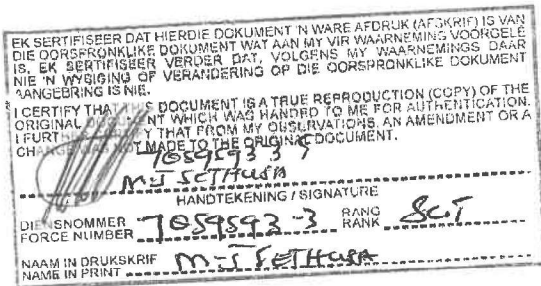 EK SERTIFISEER DAT HIERDIE DOKUMENT 'N WARE AFDRUK (AFSKRIF) IS VAN
DIE OORSPRONKLIKE DOKUMENT WAT AAN MY VIR WAARNEMING VOORGELÊ
IS. EK SERTIFISEER VERDER DAT, VOLGENS MY WAARNEMINGS DAAR
NIE 'N WYSIGING OF VERANDERING OP DIE OORSPRONKLIKE DOKUMENT
AANGEBRING IS NIE.
I CERTIFY THAT THIS DOCUMENT IS A TRUE REPRODUCTION (COPY) OF THE
ORIGINAL DOCUMENT WHICH WAS HANDED TO ME FOR AUTHENTICATION.
I FURTHER CERTIFY THAT FROM MY OBSERVATIONS, AN AMENDMENT OR A
CHANGE WAS NOT MADE TO THE ORIGINAL DOCUMENT.
7059593 3
M-J SETHUSA
HANDTEKENING / SIGNATURE
DIENSNOMMER
FORCE NUMBER 7059593-3 RANG
RANK SGT
NAAM IN DRUKSKRIF
NAME IN PRINT M-J SETHUSA